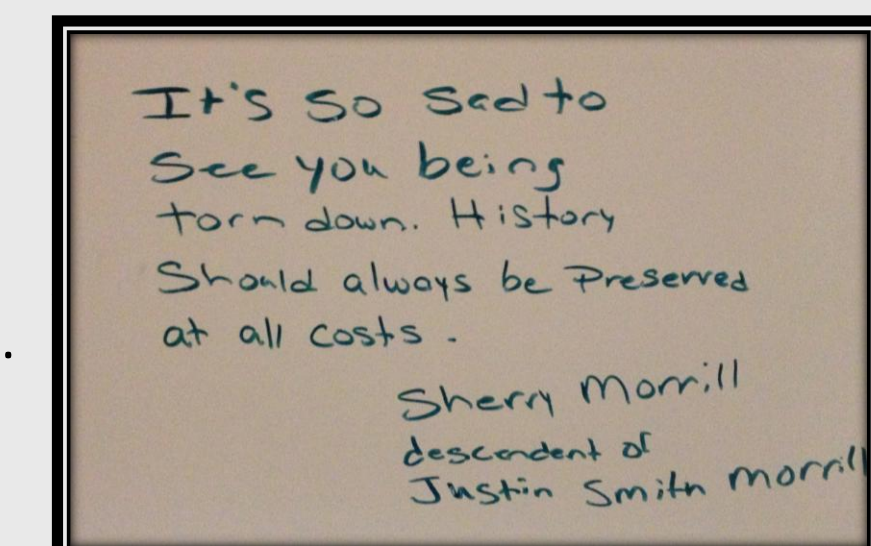 It's so sad to
See you being
torn down. History
Should always be Preserved
at all costs.
Sherry Morrill
descendent of
Justin Smith Morrill